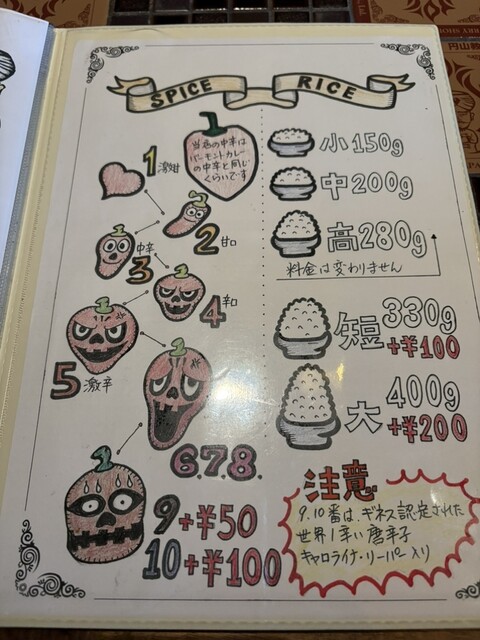 SPICE RICE
当店の中辛は
バーモントカレー
の中辛と同じ
くらいです
1 激甘
2 甘口
3 中辛
4 辛口
5 激辛
6.7.8.
9+¥50
10+¥100
小 150g
中 200g
高 280g
料金は変わりません
短 330g
+¥100
大 400g
+¥200
注意
9.10番は、ギネス認定された
世界1辛い唐辛子
キャロライナ・リーパー入り
円山